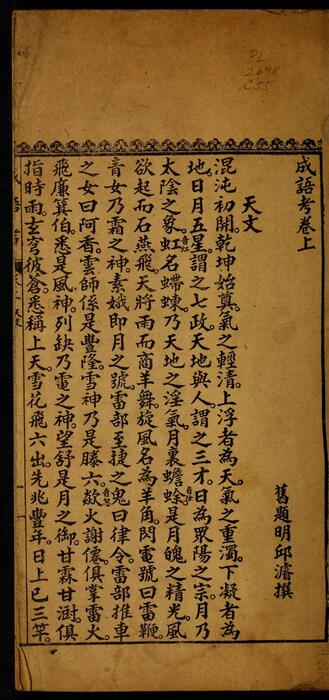 PL
2698
.C55
成語考卷上
舊題明邱濬撰
天文
混沌初開。乾坤始奠。氣之輕清。上浮者為天。氣之重濁。下凝者為
地。日月五星。謂之七政。天地與人。謂之三才。日為眾陽之宗。月乃
太陰之象。虹名螮蝀。乃天地之淫氣。月裏蟾蜍。是月魄之精光。風
欲起而石燕飛。天將雨而商羊舞。旋風名為羊角。閃電號曰雷鞭。
青女乃霜之神。素娥即月之號。雷部至捷之鬼曰律令。雷部推車
之女曰阿香。雲師係是豐隆。雪神乃是滕六。歘火謝僊。俱掌雷火。
飛廉箕伯。悉是風神。列缺乃電之神。望舒是月之御。甘霖甘澍。俱
指時雨。玄穹彼蒼。悉稱上天。雪花飛六出。先兆豐年。日上已三竿。